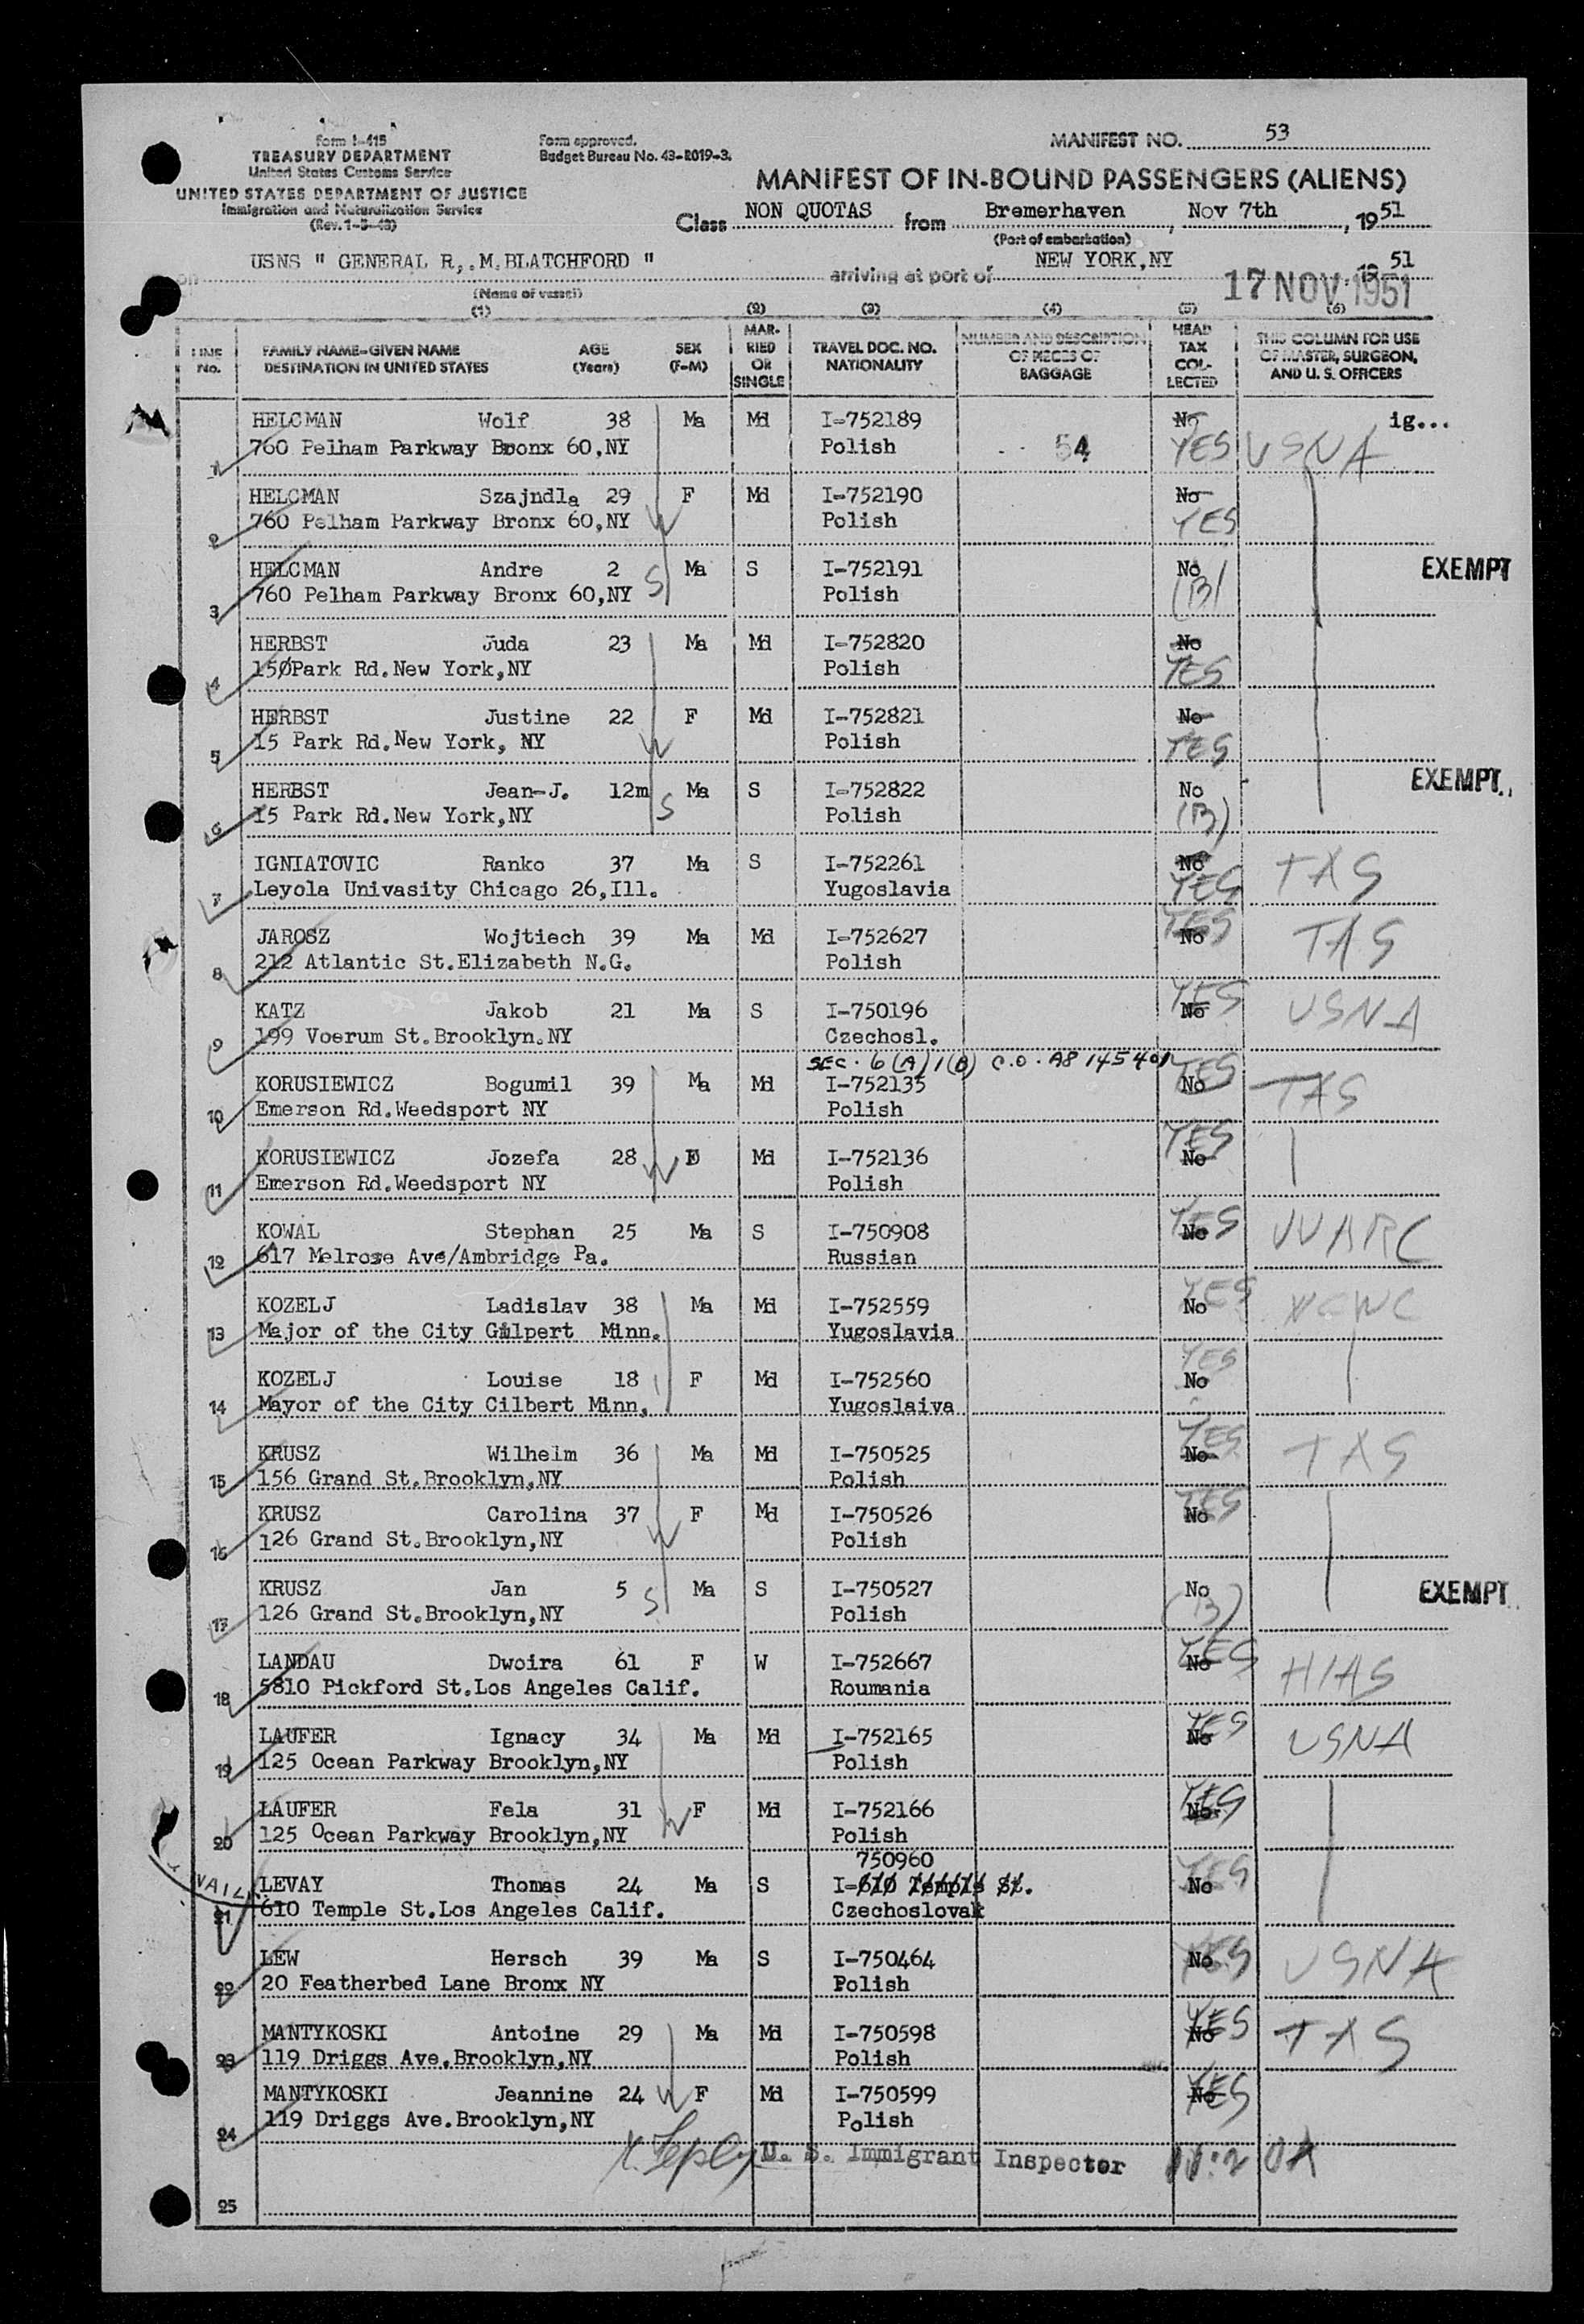 Form I-415
TREASURY DEPARTMENT
United States Customs Service
UNITED STATES DEPARTMENT OF JUSTICE
Immigration and Naturalization Service
Form approved.
Budget Bureau No. 43-R019-3.
MANIFEST NO. 53
MANIFEST OF IN-BOUND PASSENGERS (ALIENS)
Class NON QUOTAS from Bremerhaven, Nov 7th, 1951
(Port of embarkation)
on USNS " GENERAL R,.M.BLATCHFORD " arriving at port of NEW YORK,NY 51
17 NOV 1951
(Name of vessel)
(1) (2) (3) (4) (5) (6)
LINE No. FAMILY NAME-GIVEN NAME DESTINATION IN UNITED STATES AGE (Years) SEX (F-M) MARRIED OR SINGLE TRAVEL DOC. NO. NATIONALITY NUMBER AND DESCRIPTION OF PIECES OF BAGGAGE HEAD TAX COLLECTED THIS COLUMN FOR USE OF MASTER, SURGEON, AND U. S. OFFICERS
HELCMAN Wolf 38 Ma Md I-752189 No ig...
1 760 Pelham Parkway Bronx 60,NY Polish 54 YES USNA
HELCMAN Szajndla 29 F Md I-752190 No
2 760 Pelham Parkway Bronx 60,NY W Polish YES
HELCMAN Andre 2 S Ma S I-752191 No EXEMPT
3 760 Pelham Parkway Bronx 60,NY Polish (B)
HERBST Juda 23 Ma Md I-752820 No
4 150Park Rd.New York,NY Polish YES
HERBST Justine 22 F Md I-752821 No
5 15 Park Rd.New York, NY W Polish YES
HERBST Jean-J. 12m S Ma S I-752822 No EXEMPT
6 15 Park Rd.New York,NY Polish (B)
IGNIATOVIC Ranko 37 Ma S I-752261 No TAS
7 Leyola Univasity Chicago 26,Ill. Yugoslavia YES
JAROSZ Wojtiech 39 Ma Md I-752627 YES No TAS
8 212 Atlantic St.Elizabeth N.G. Polish
KATZ Jakob 21 Ma S I-750196 YES No USNA
9 199 Voerum St.Brooklyn.NY Czechosl.
SEC. 6(A)1(B) C.O. A8 145401
KORUSIEWICZ Bogumil 39 Ma Md I-752135 YES No TAS
10 Emerson Rd.Weedsport NY Polish
KORUSIEWICZ Jozefa 28 W F Md I-752136 YES No
11 Emerson Rd.Weedsport NY Polish
KOWAL Stephan 25 Ma S I-750908 YES No WARC
12 617 Melrose Ave/Ambridge Pa. Russian
KOZELJ Ladislav 38 Ma Md I-752559 YES No NCWC
13 Major of the City Gilpert Minn. Yugoslavia
KOZELJ Louise 18 F Md I-752560 YES No
14 Mayor of the City Cilbert Minn, Yugoslaiva
KRUSZ Wilhelm 36 Ma Md I-750525 YES No TAS
15 156 Grand St.Brooklyn,NY Polish
KRUSZ Carolina 37 W F Md I-750526 YES No
16 126 Grand St.Brooklyn,NY Polish
KRUSZ Jan 5 S Ma S I-750527 No EXEMPT
17 126 Grand St.Brooklyn,NY Polish (B)
LANDAU Dwoira 61 F W I-752667 YES No HIAS
18 5810 Pickford St.Los Angeles Calif. Roumania
LAUFER Ignacy 34 Ma Md I-752165 YES No USNA
19 125 Ocean Parkway Brooklyn,NY Polish
LAUFER Fela 31 W F Md I-752166 YES No
20 125 Ocean Parkway Brooklyn,NY Polish
750960
LEVAY Thomas 24 Ma S I-610 Temple St. YES No
21 610 Temple St.Los Angeles Calif. Czechoslovak
LEW Hersch 39 Ma S I-750464 YES No USNA
22 20 Featherbed Lane Bronx NY Polish
MANTYKOSKI Antoine 29 Ma Md I-750598 YES No TAS
23 119 Driggs Ave.Brooklyn,NY Polish
MANTYKOSKI Jeannine 24 W F Md I-750599 YES No
24 119 Driggs Ave.Brooklyn,NY Polish
U. S. Immigrant Inspector
25